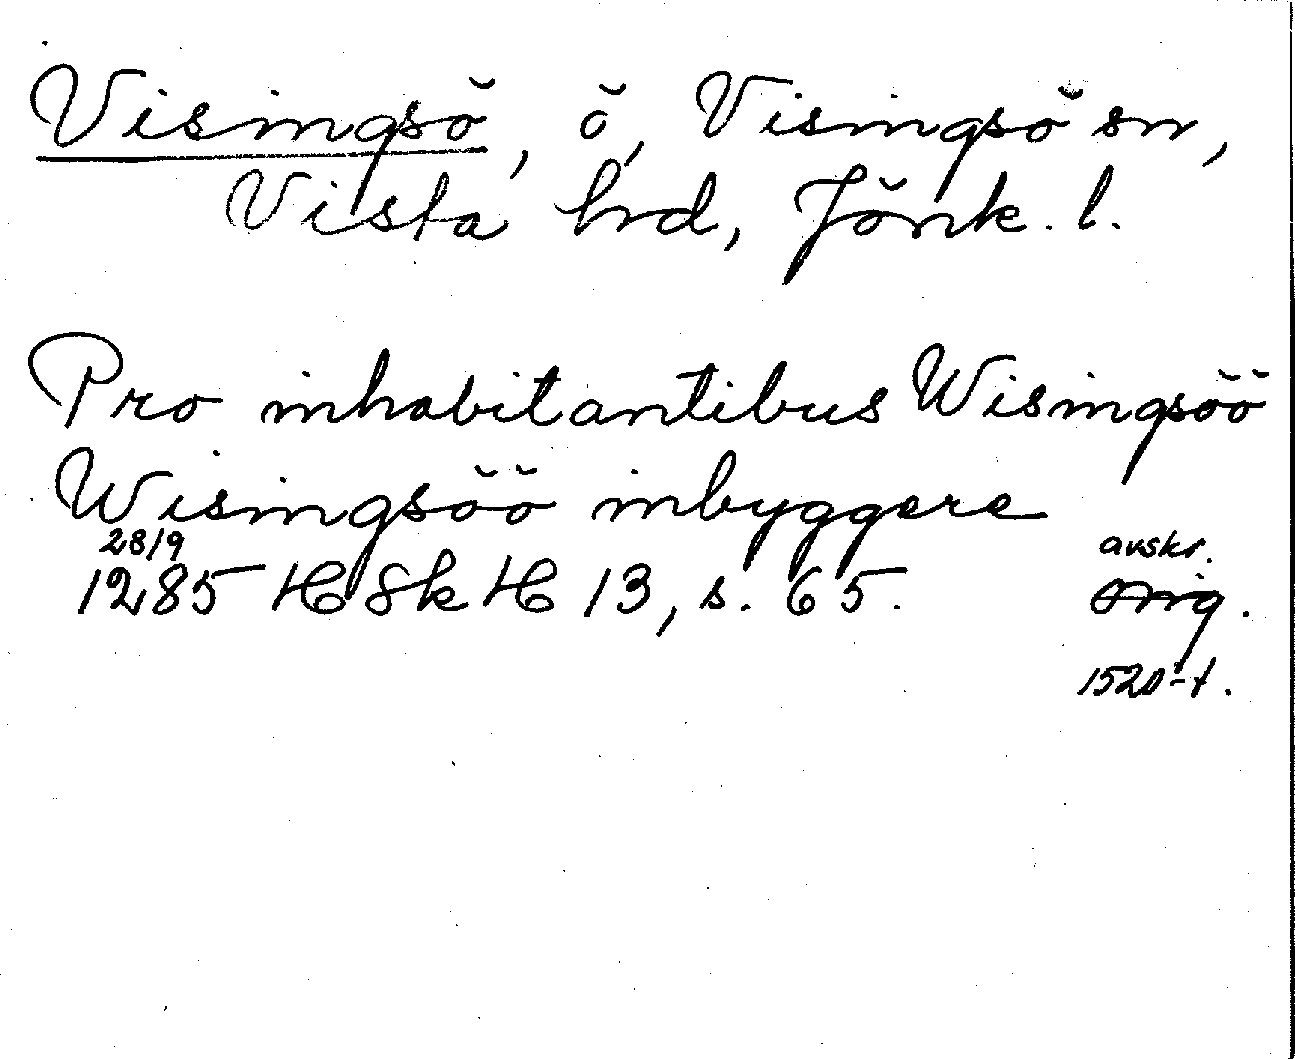 Visingsö, ö, Visingsö sn,
Vista hrd, Jönk. l.
Pro inhabitantibus Wisingsöö
Wisingsöö inbyggere
28/9
1285 HSkH 13, s. 65. avskr.
orig.
1520-t.